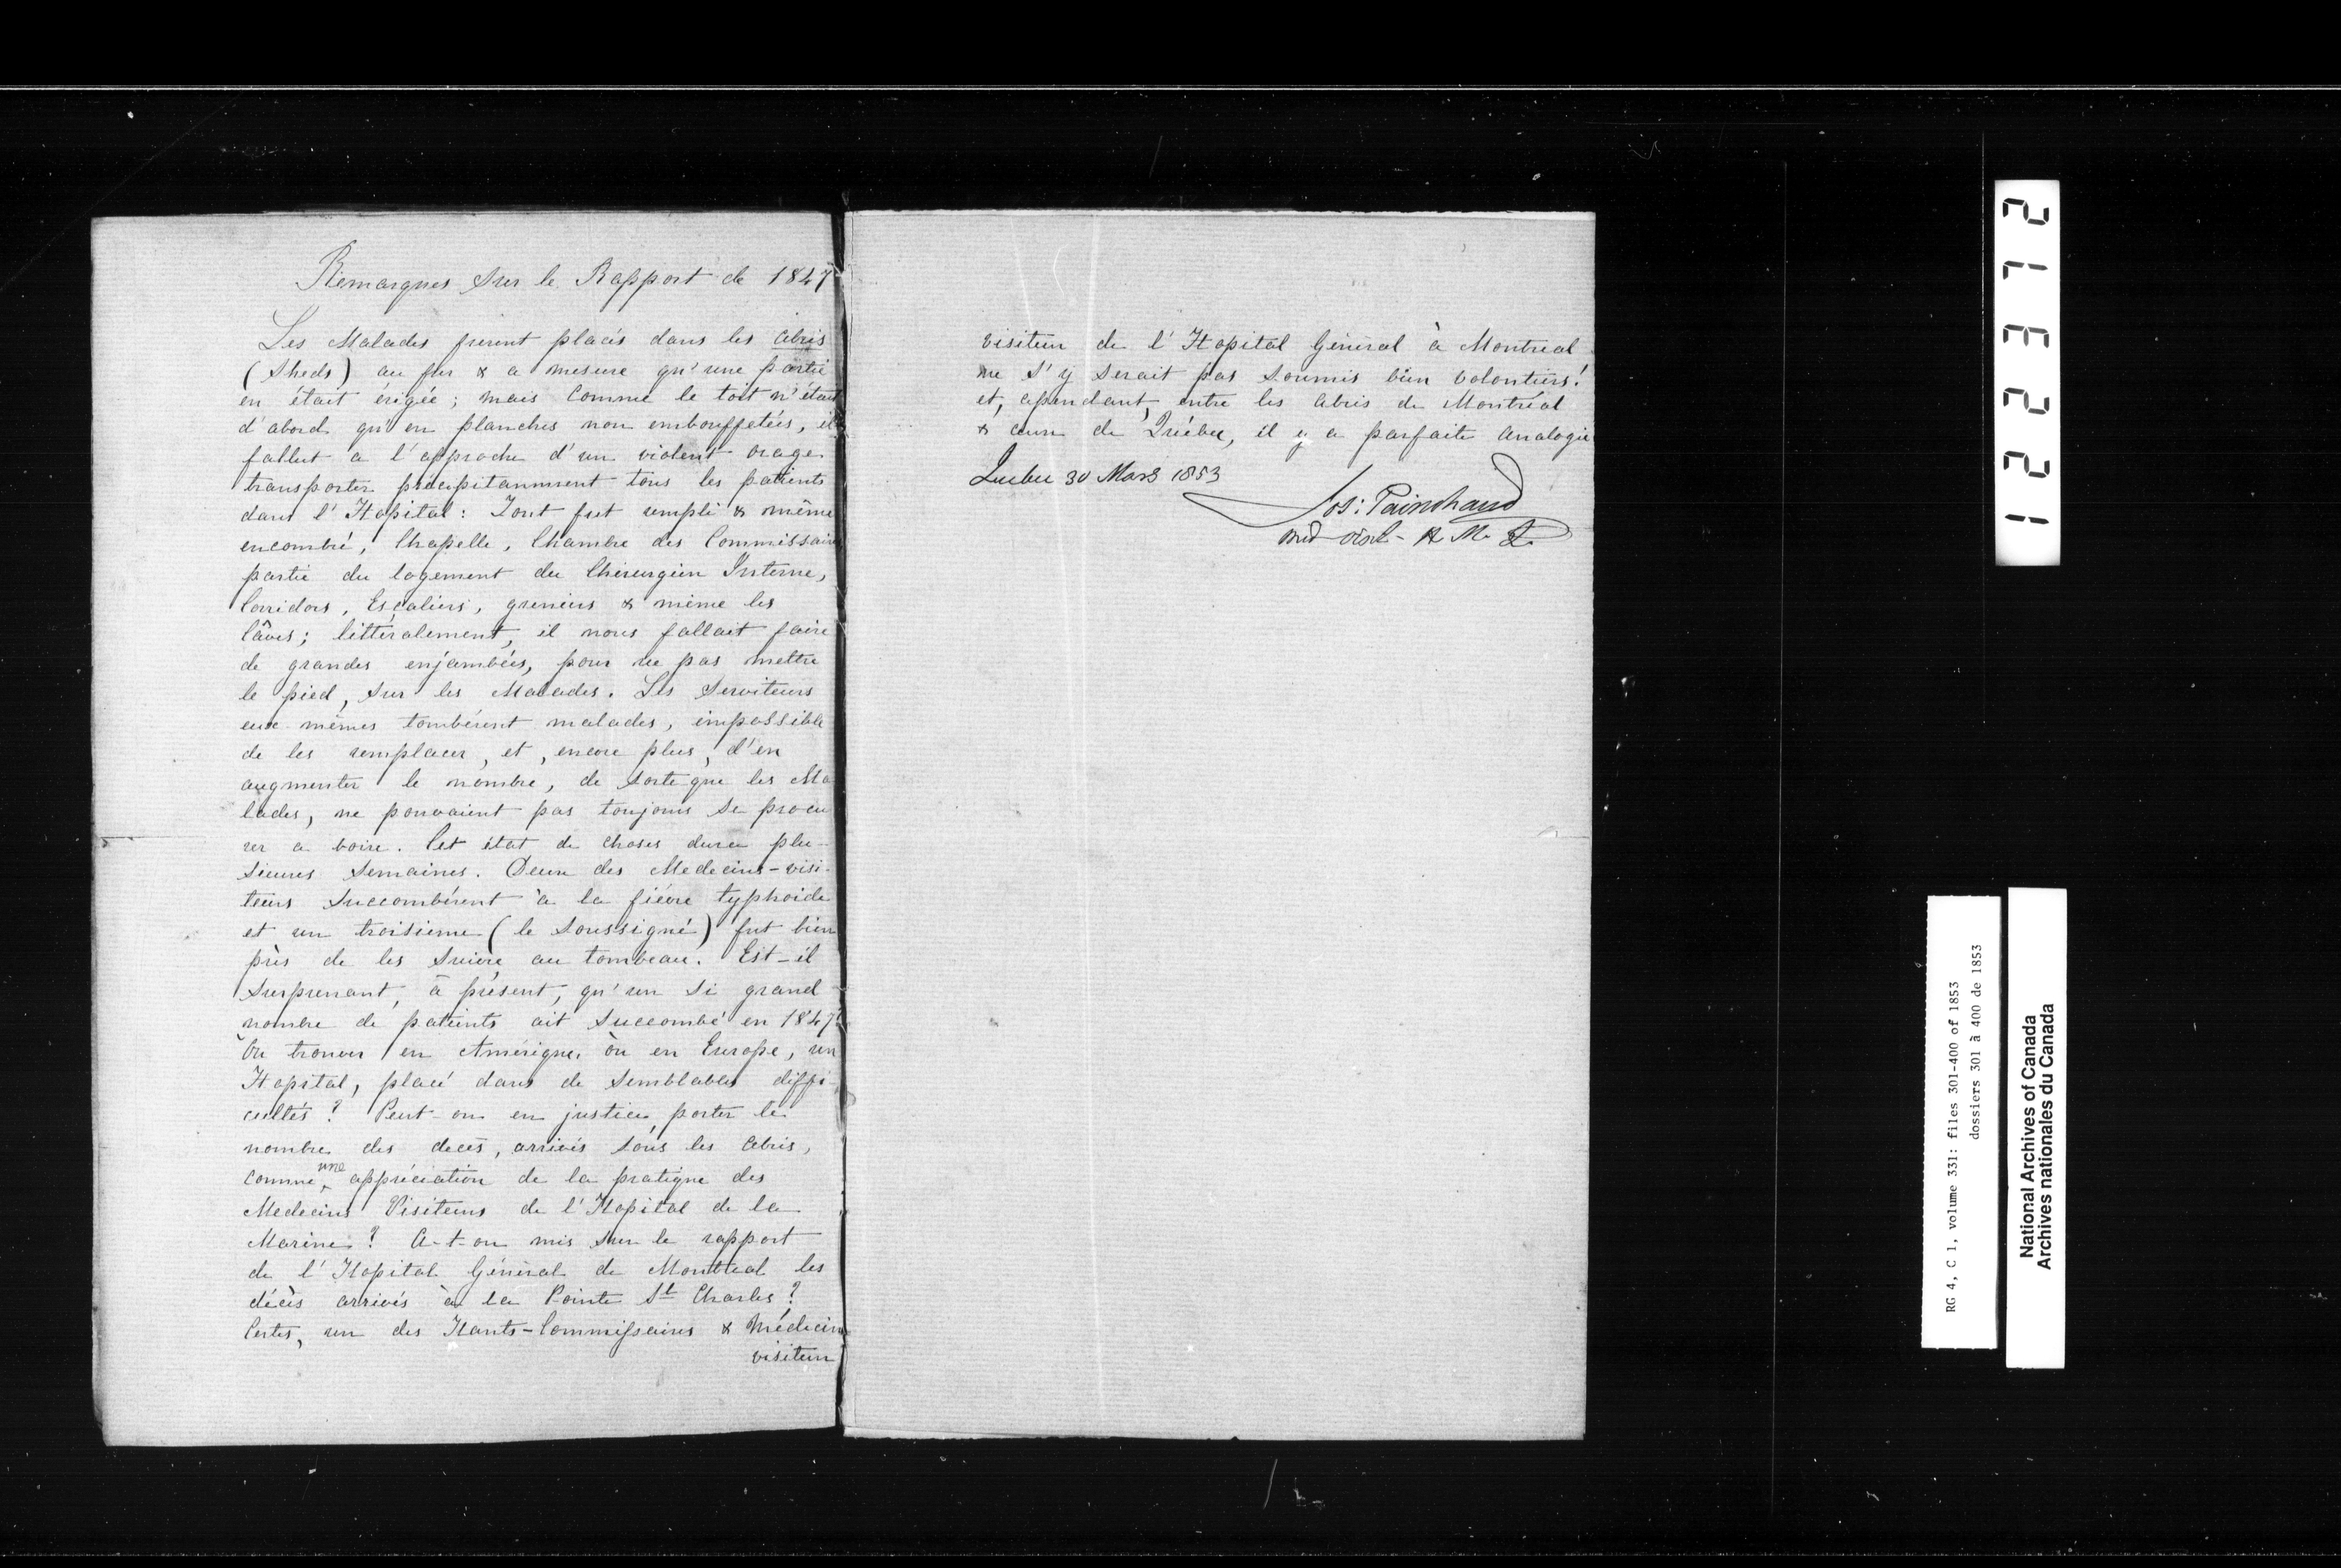 Remarques sur le Rapport de 1847
Les Malades furent placés dans les abris
(Sheds) au fur & a mesure qu'une partie
en était érigée; mais Comme le toit n'était
d'abord qu'en planches non embouffetées, il
fallut a l'approche d'un violent orage
transporter précipitamment tous les patients
dans l'Hopital: Tout fut rempli & même
encombré, Chapelle, Chambre des Commissaires
partie du logement du Chirurgien Interne,
Corridors, Escaliers, greniers & même les
Câves; littéralement, il nous fallait faire
de grandes enjambées, pour ne pas mettre
le pied, sur les Malades. Les Serviteurs
eux-mêmes tombérent malades, impossible
de les remplacer, et, encore plus, d'en
augmenter le nombre, de sorte que les Ma
lades, ne pouvaient pas toujours se procu
rer a boire. Cet état de choses dura plu-
sieurs Semaines. Deux des Medecins-visi-
teurs Succombérent à la fiévre typhoide
et un troisieme (le Soussigné) fut bien
près de les suivre au tombeau. Est-il
Surprenant, à présent, qu'un si grand
nombre de patients ait Succombé en 1847?
Où trouver en Amérique, ou en Europe, un
Hopital, placé dans de Semblables diffi
cultés? Peut-on en justice, porter le
nombre des decès, arrivés sous les abris,
comme une appréciation de la pratique des
Medecins Visiteurs de l'Hopital de la
Marine? A-t-on mis sur le rapport
de l'Hopital Général de Montreal les
décès arrivés à la Pointe St Charles?
Certes, un des Hauts-Commissaires & Médecin
visiteur
visiteur de l'Hopital Général à Montreal
ne s'y serait pas soumis bien volontiers!
et, cependant, entre les abris de Montréal
& ceux de Québec, il y a parfaite analogie
Quebec 30 Mars 1853
Jos: Painchaud
12372
RG 4, C 1, volume 331: files 301-400 of 1853
dossiers 301 à 400 de 1853
National Archives of Canada
Archives nationales du Canada